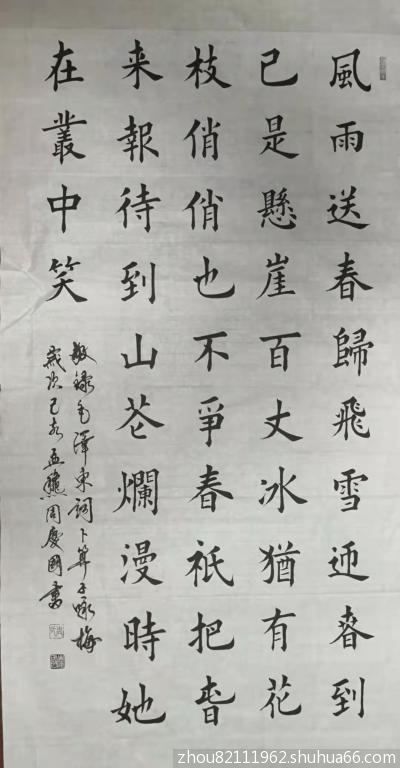 風雨送春歸飛雪迎春到
已是懸崖百丈冰猶有花
枝俏俏也不爭春祇把春
来報待到山花爛漫時她
在叢中笑
敬錄毛澤東詞卜算子咏梅
歲次己亥孟龝周慶國書
zhou82111962.shuhua66.com